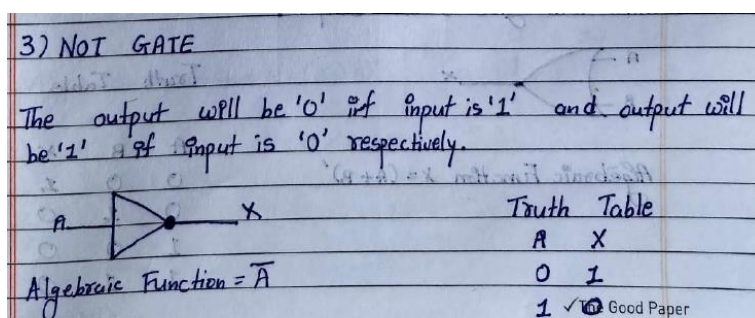 3) NOT GATE
The output will be '0' if input is '1' and output will
be '1' if input is '0' respectively.
A X
Algebraic Function = A̅
Truth Table
A X
0 1
1 0
✓The Good Paper